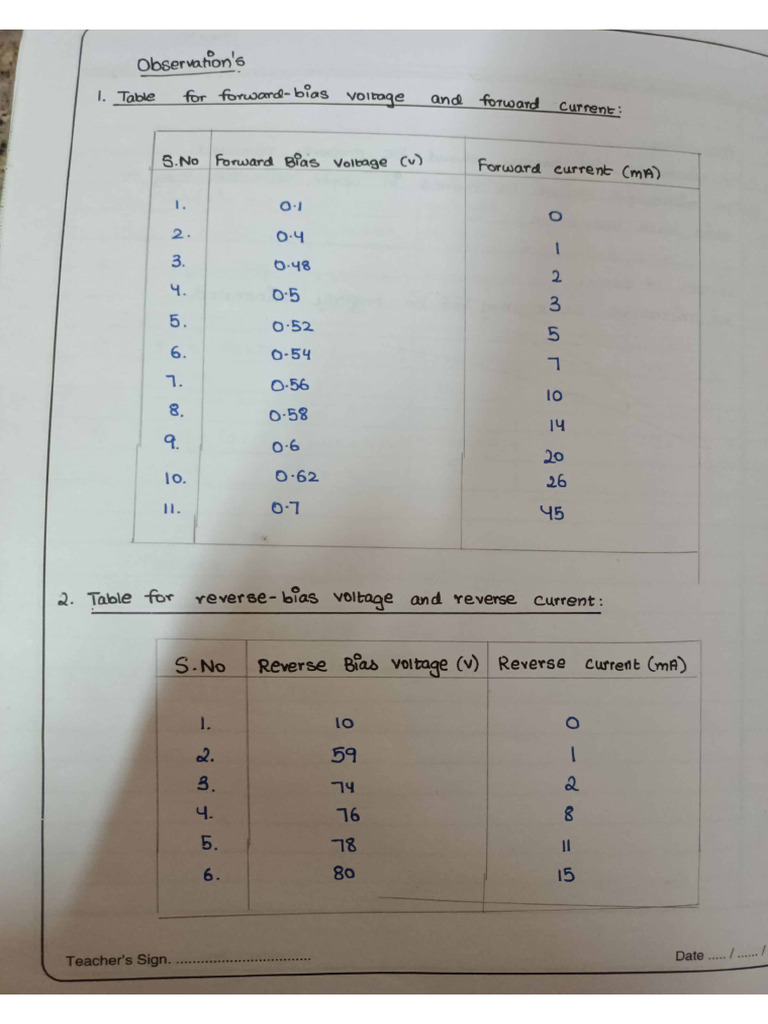 Observation's
1. Table for forward-bias voltage and forward current:
S.No Forward Bias voltage (v) Forward current (mA)
1. 0.1 0
2. 0.4 1
3. 0.48 2
4. 0.5 3
5. 0.52 5
6. 0.54 7
7. 0.56 10
8. 0.58 14
9. 0.6 20
10. 0.62 26
11. 0.7 45
2. Table for reverse-bias voltage and reverse current:
S.No Reverse Bias voltage (v) Reverse current (mA)
1. 10 0
2. 59 1
3. 74 2
4. 76 8
5. 78 11
6. 80 15
Teacher's Sign. ................................ Date ..... / ...... /